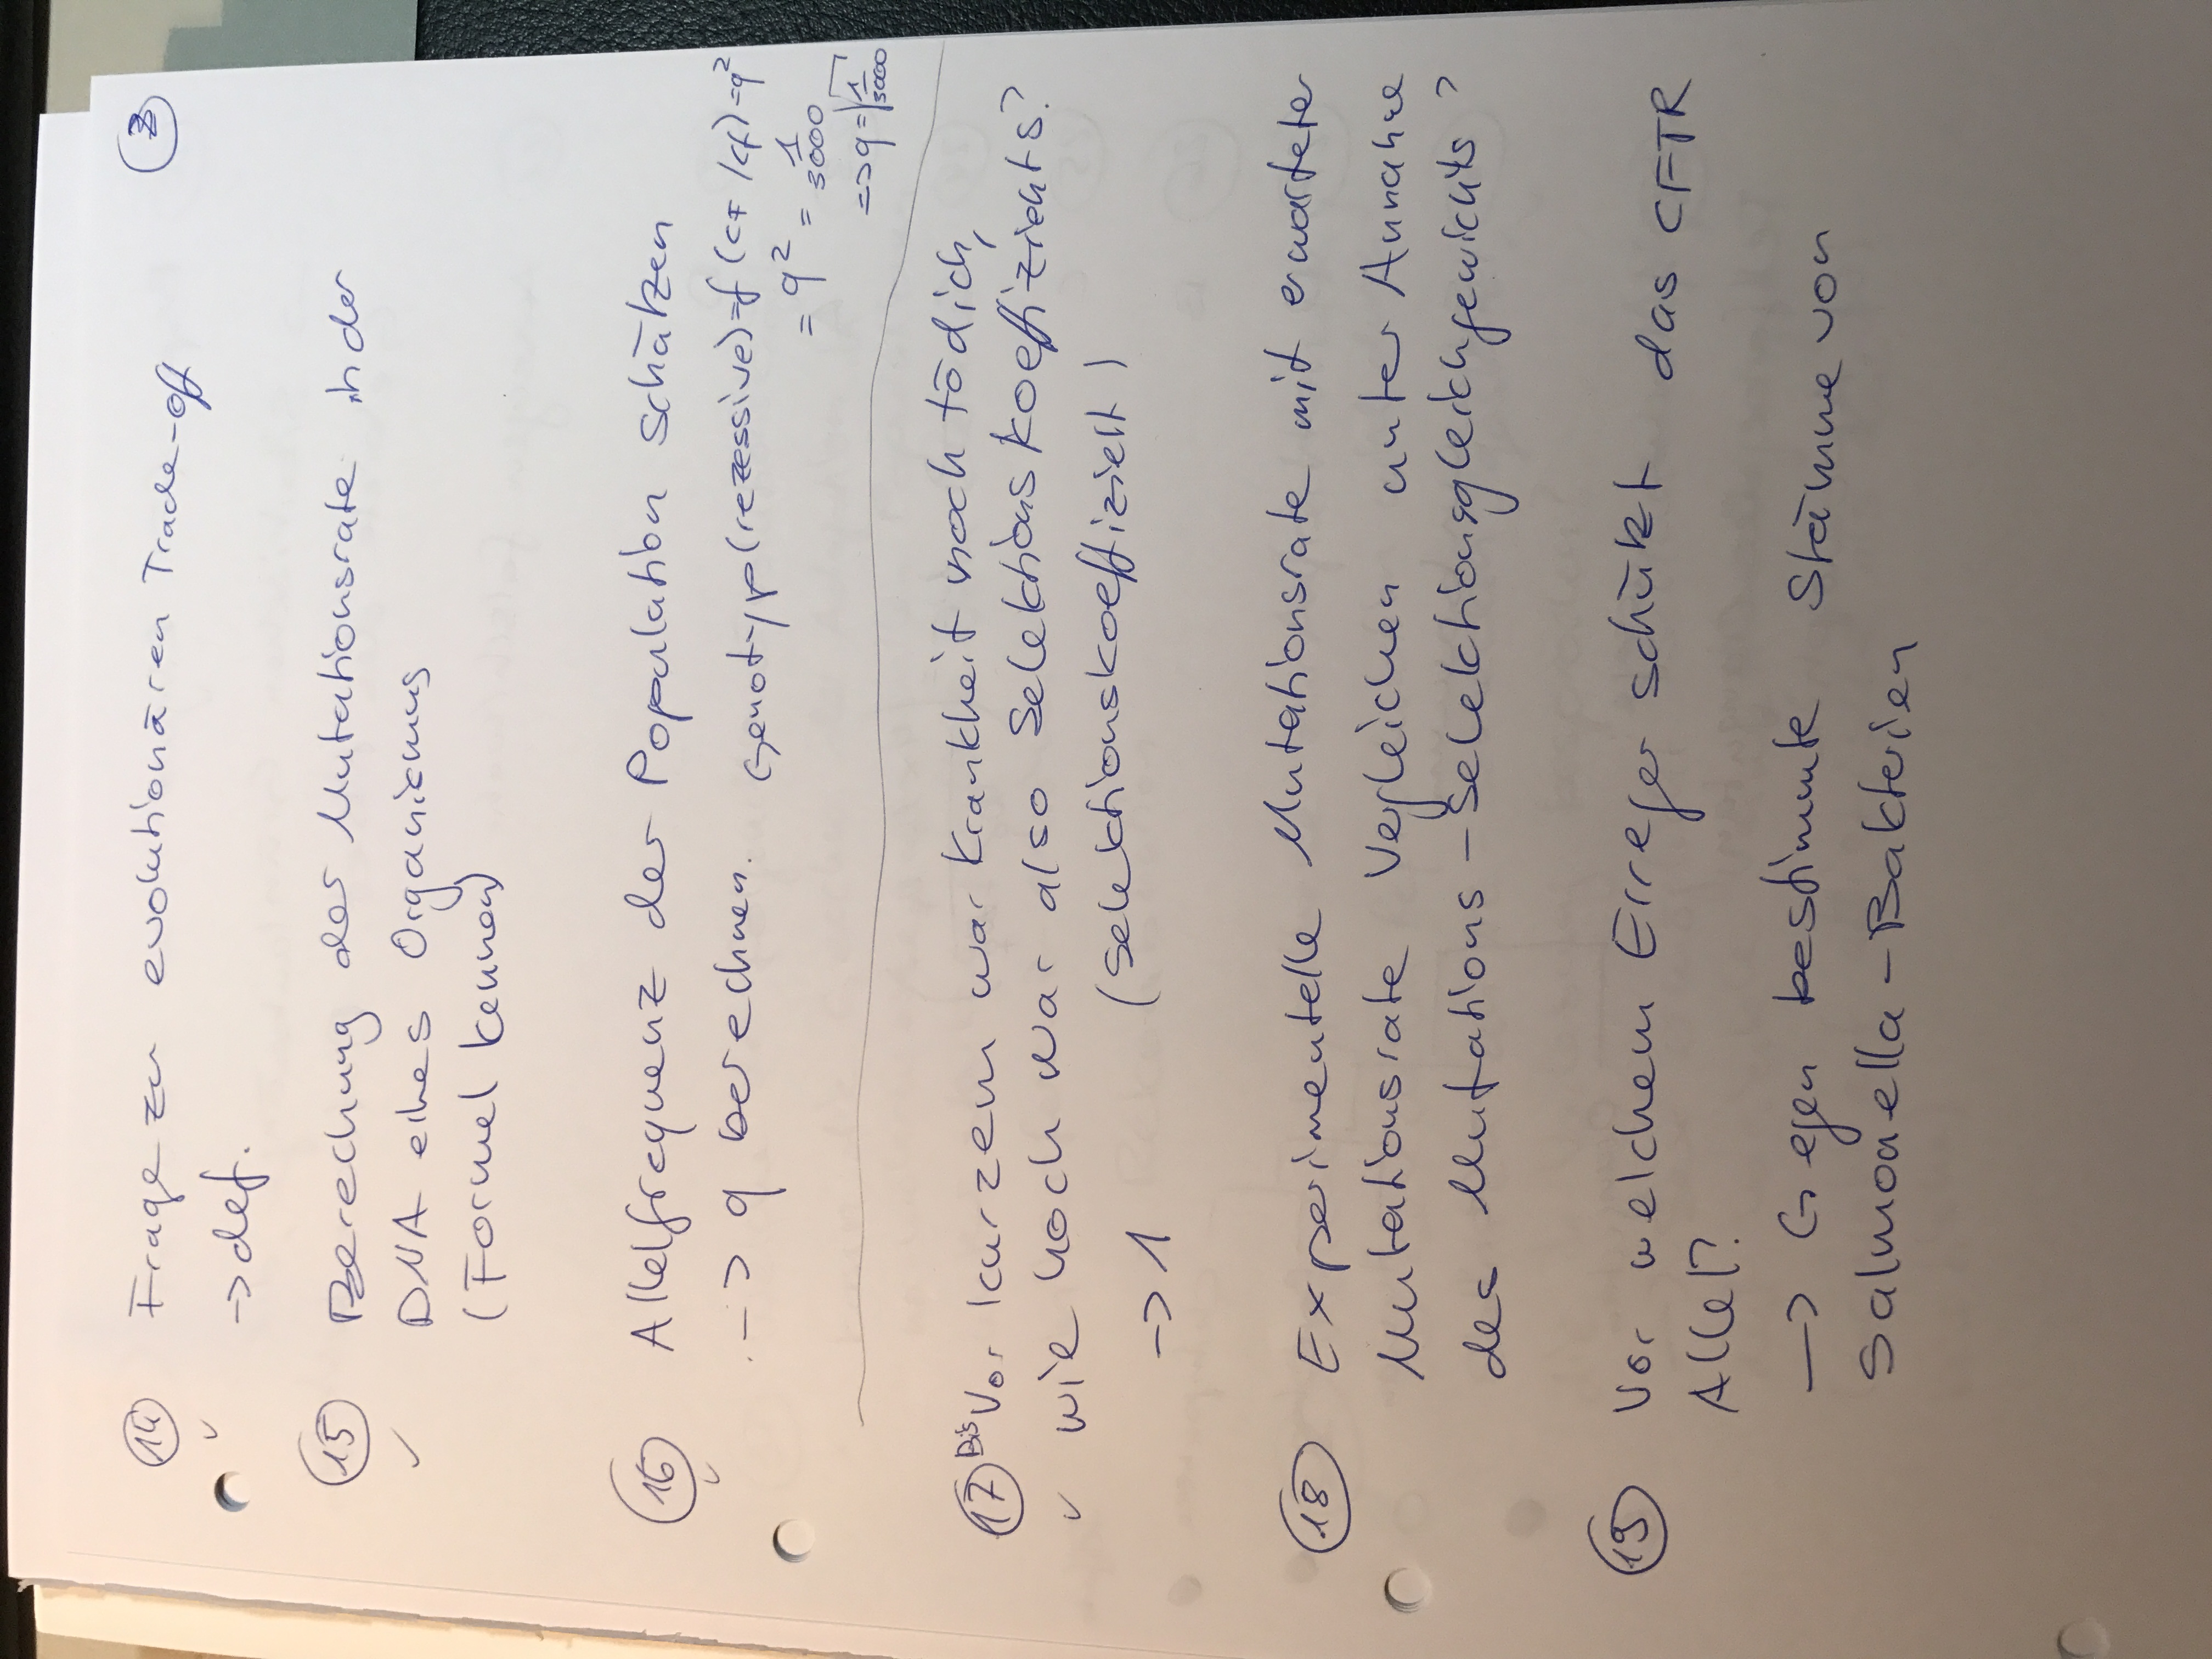 14 Frage zu evolutionären Trade-off
3
→ def.
15 Berechung der Mutationsrate in der
DNA eines Organismus
(Formel kennen)
16 Allelfrequenz der Population schätzen
→ q berechnen. Genotyp (rezessive) = f (CF / cf) = q²
= q² = 1/3000
=> q = √1/3000
17 Bis Vor kurzem war Krankheit noch tödich,
wie hoch war also Selektionskoeffizients?
(Selektionskoeffizient)
→ 1
18 Experimentelle Mutationsrate mit erwarteter
Mutationsrate Vergleichen unter Annahme
des Mutations-Selektionsgleichgewichts?
19 Vor welchem Erreger schützt das CFTR
Allel?
→ Gegen bestimmte Stämme von
Salmonella-Bakterien